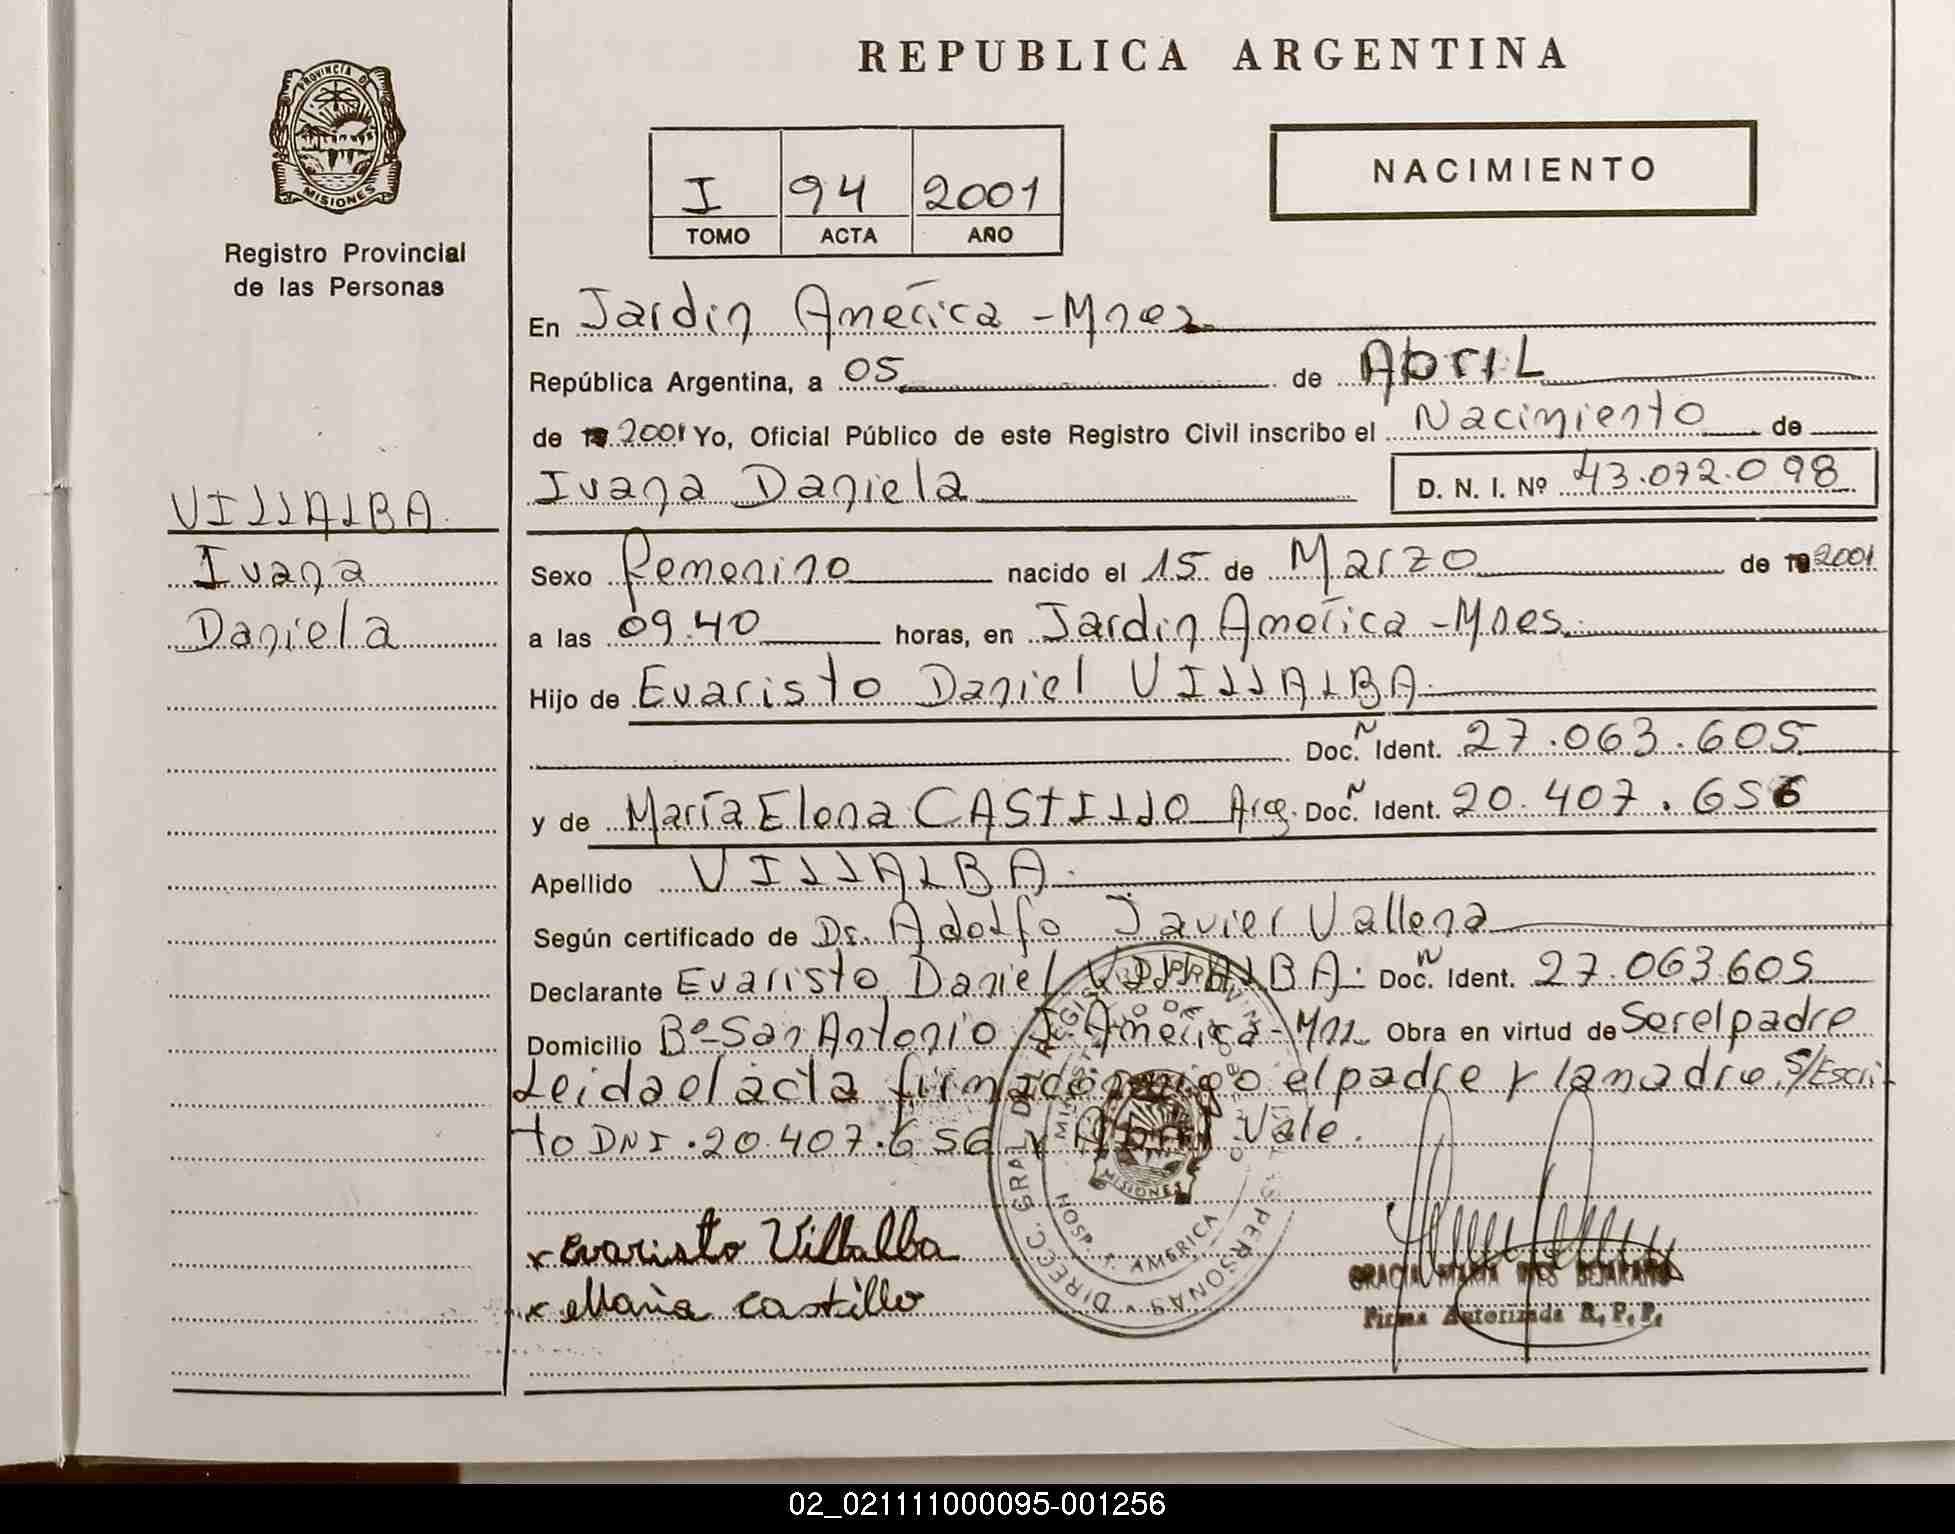 REPUBLICA ARGENTINA
PROVINCIA DE
MISIONES
Registro Provincial
de las Personas
I 94 2001
TOMO ACTA AÑO
NACIMIENTO
En Jardin América - Mnes.
República Argentina, a 05 de Abril
de 2001 Yo, Oficial Público de este Registro Civil inscribo el Nacimiento de
Ivana Daniela D. N. I. Nº 43.072.098
VILLALBA
Ivana
Daniela
Sexo femenino nacido el 15 de Marzo de 19 2001
a las 09.40 horas, en Jardin América - Mnes.
Hijo de Evaristo Daniel VILLALBA.
Doc. N Ident. 27.063.605
y de María Elena CASTILLO Arg. Doc. N Ident. 20.407.656
Apellido VILLALBA.
Según certificado de Dr. Adolfo Javier Vallena
Declarante Evaristo Daniel VILLALBA. Doc. N Ident. 27.063.605
Domicilio Bº San Antonio J. América - Mn Obra en virtud de Ser el padre
Leida el acta firma conmigo el padre y la madre. S/Escri-
to DNI. 20.407.656 y Abril Vale.
x Evaristo Villalba
x Maria Castillo
DIRECC. GRAL. DEL REGISTRO PROVIN DE LAS PERSONAS
HOSP. J. AMERICA
MISIONES
GRACIA MARIA INES BEJARANO
Firma Autorizada R. P. P.
02_021111000095-001256